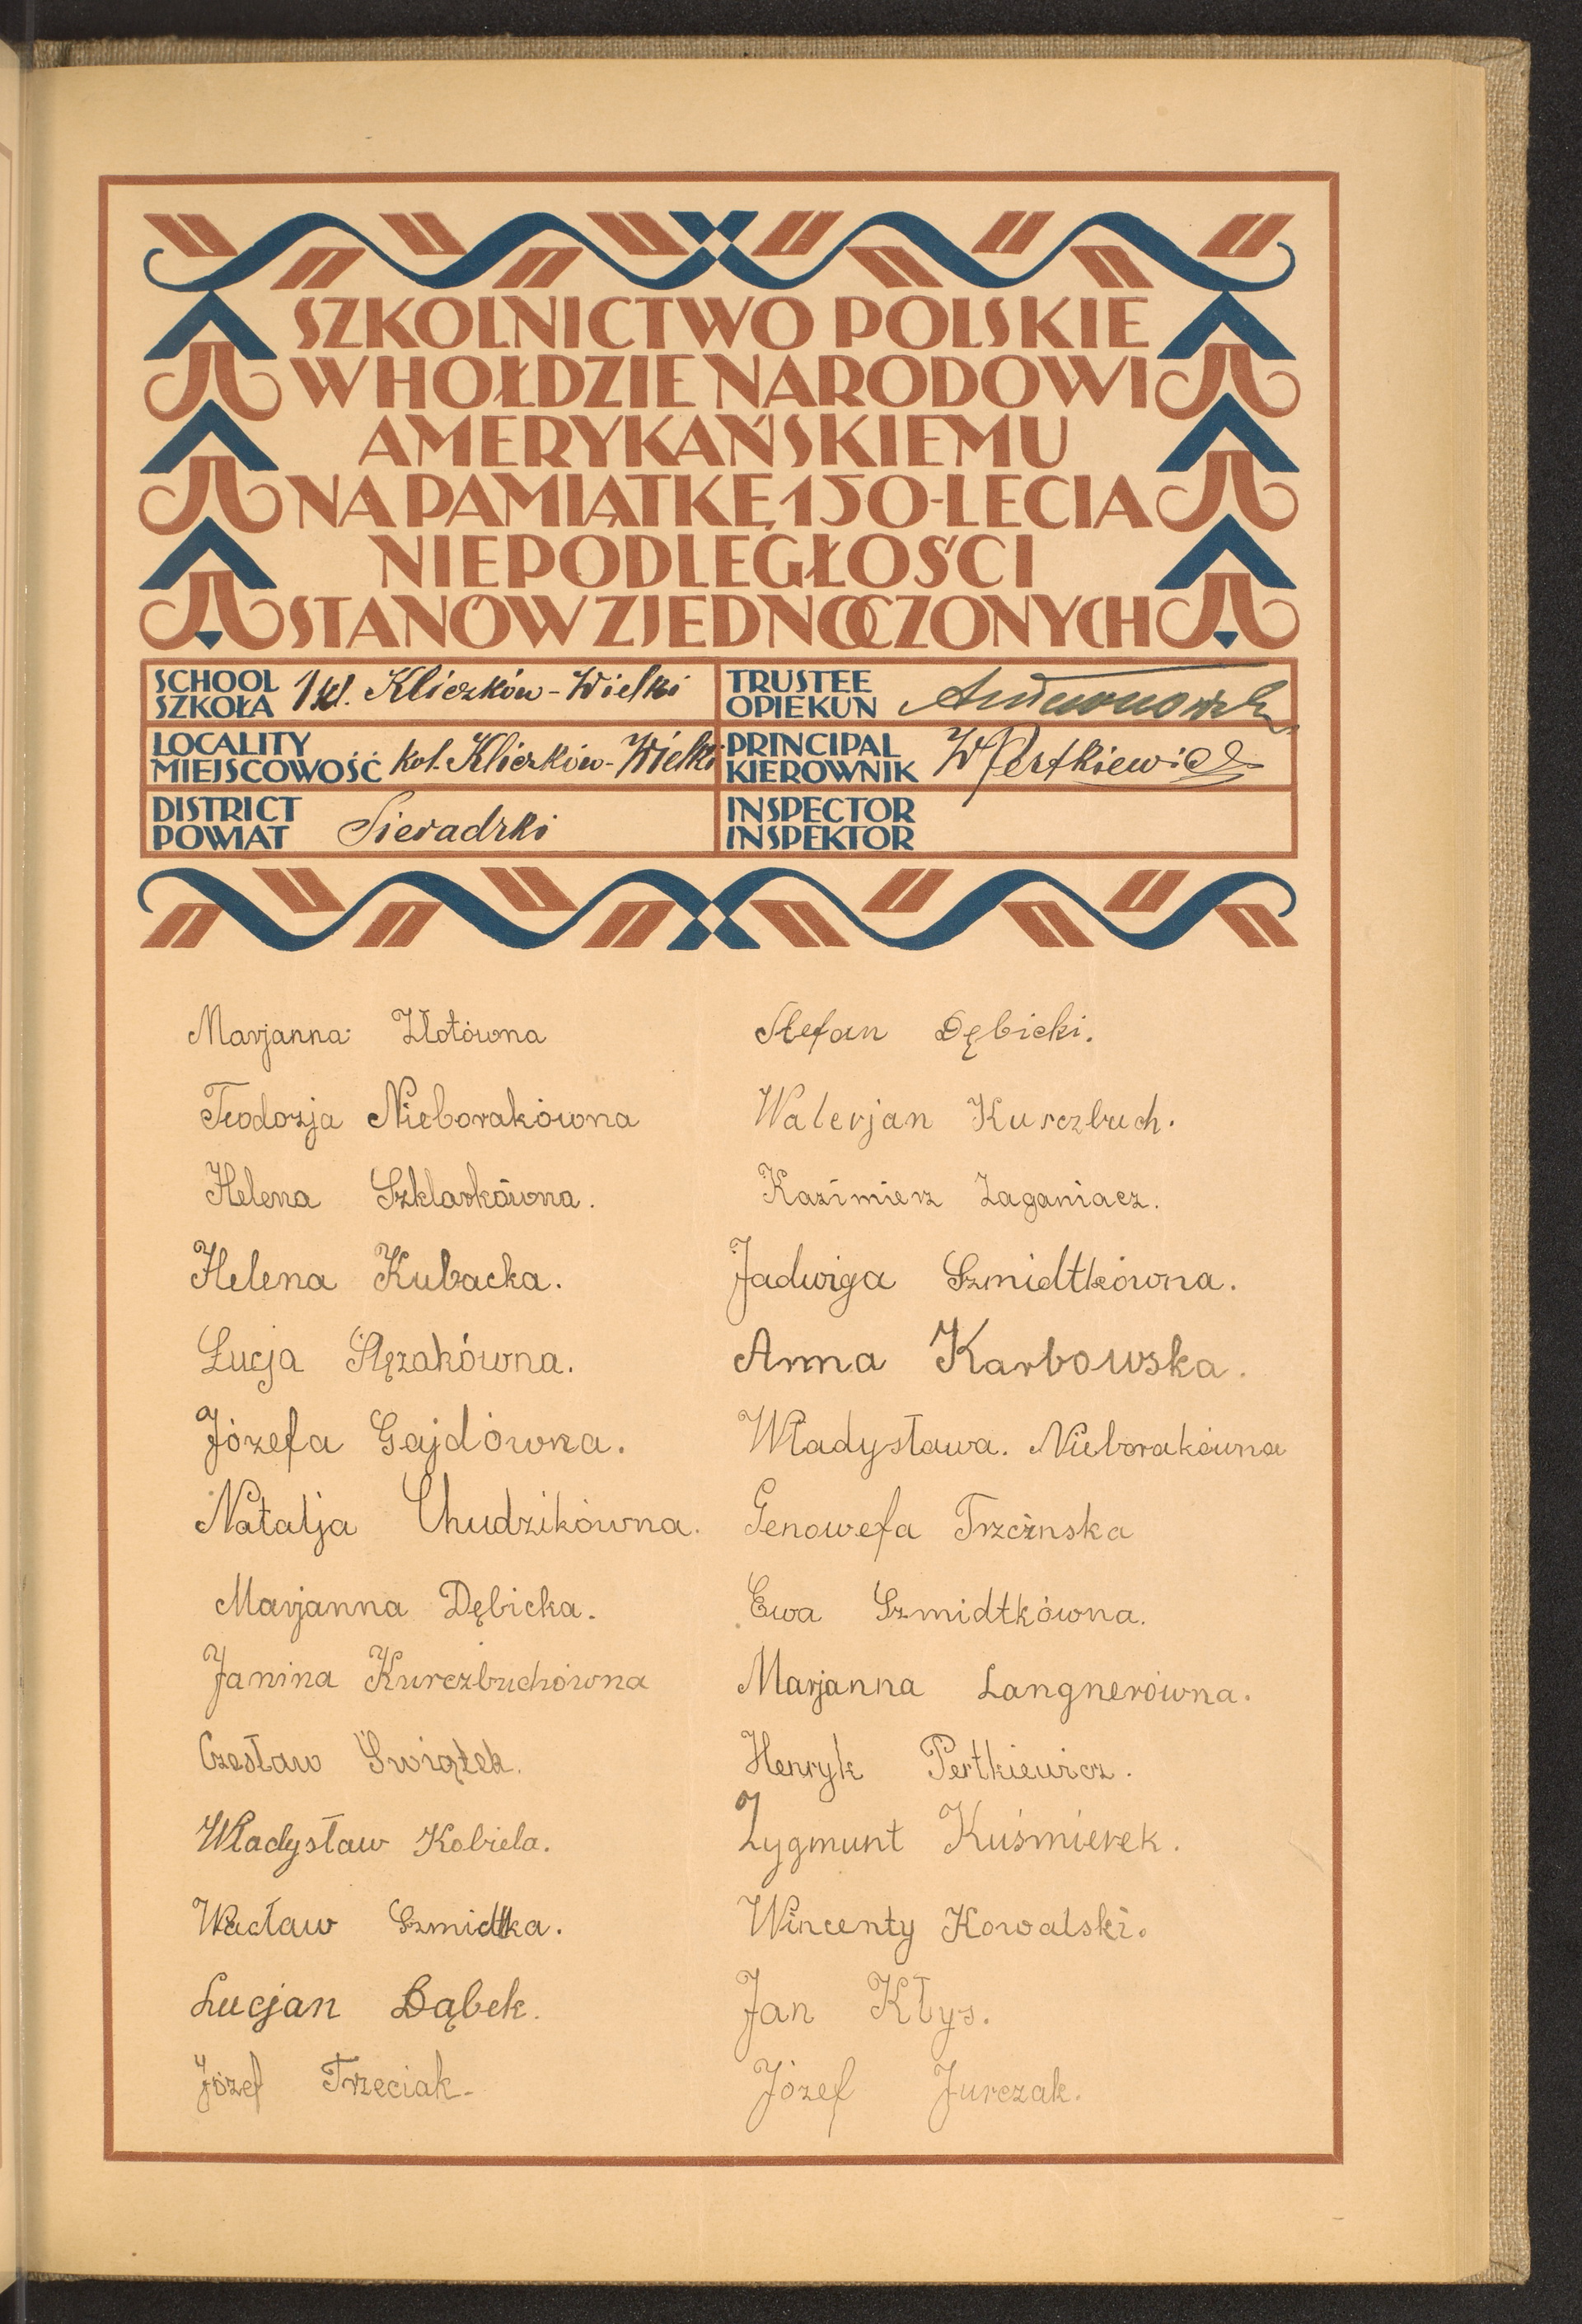 SZKOLNICTWO POLSKIE
W HOŁDZIE NARODOWI
AMERYKAŃSKIEMU
NA PAMIĄTKĘ 150-LECIA
NIEPODLEGŁOŚCI
STANÓW ZJEDNOCZONYCH
SCHOOL
SZKOŁA
1 kl. Kliczków-Wielki
TRUSTEE
OPIEKUN
LOCALITY
MIEJSCOWOŚĆ
kol. Kliczków-Wielki
PRINCIPAL
KIEROWNIK
W Pertkiewicz
DISTRICT
POWIAT
Sieradzki
INSPECTOR
INSPEKTOR
Marjanna Złotówna
Teodozja Nieborakówna
Helena Szklarkówna.
Helena Kubacka.
Łucja Ślęzakówna.
Józefa Gajdówna.
Natalja Chudzikówna.
Marjanna Dębicka.
Janina Kurczbuchówna
Czesław Świątek.
Władysław Kobiela.
Wacław Szmidtka.
Lucjan Bąbek.
Józef Trzeciak.
Stefan Dębicki.
Walerjan Kurczbuch.
Kazimierz Zaganiacz.
Jadwiga Szmidtkówna.
Anna Karbowska.
Władysława. Nieborakówna
Genowefa Trzcinska
Ewa Szmidtkówna.
Marjanna Langnerówna.
Henryk Pertkiewicz.
Zygmunt Kuśmierek.
Wincenty Kowalski.
Jan Kłys.
Józef Jurczak.